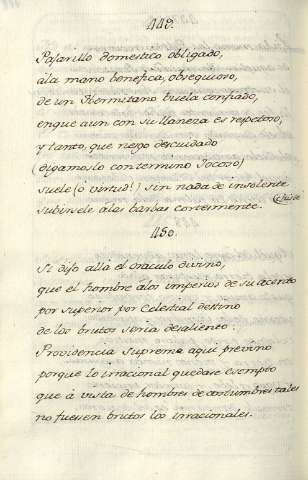 449.
Pajarillo domestico obligado,
âla mano benefica, obsequioso,
de un Hermitano buela confiado,
enque aun con sullaneza es respetoso;
y tanto, que nezio descuidado
(digamoslo contermino Jocoso)
suele (ô virtud!) sin nada de insolente
subirsele âlas barbas cortesmente. (chiste
450.
Si dijo allà el oraculo divino,
que el hombre âlos imperios de su acento
por superior por Celestial destino
de los brutos seria desaliento:
Providencia Suprema aqui previno
porque lo irracional quedase esempto
que â vista de hombres de costumbres tales
no fuesen brutos los irracionales.